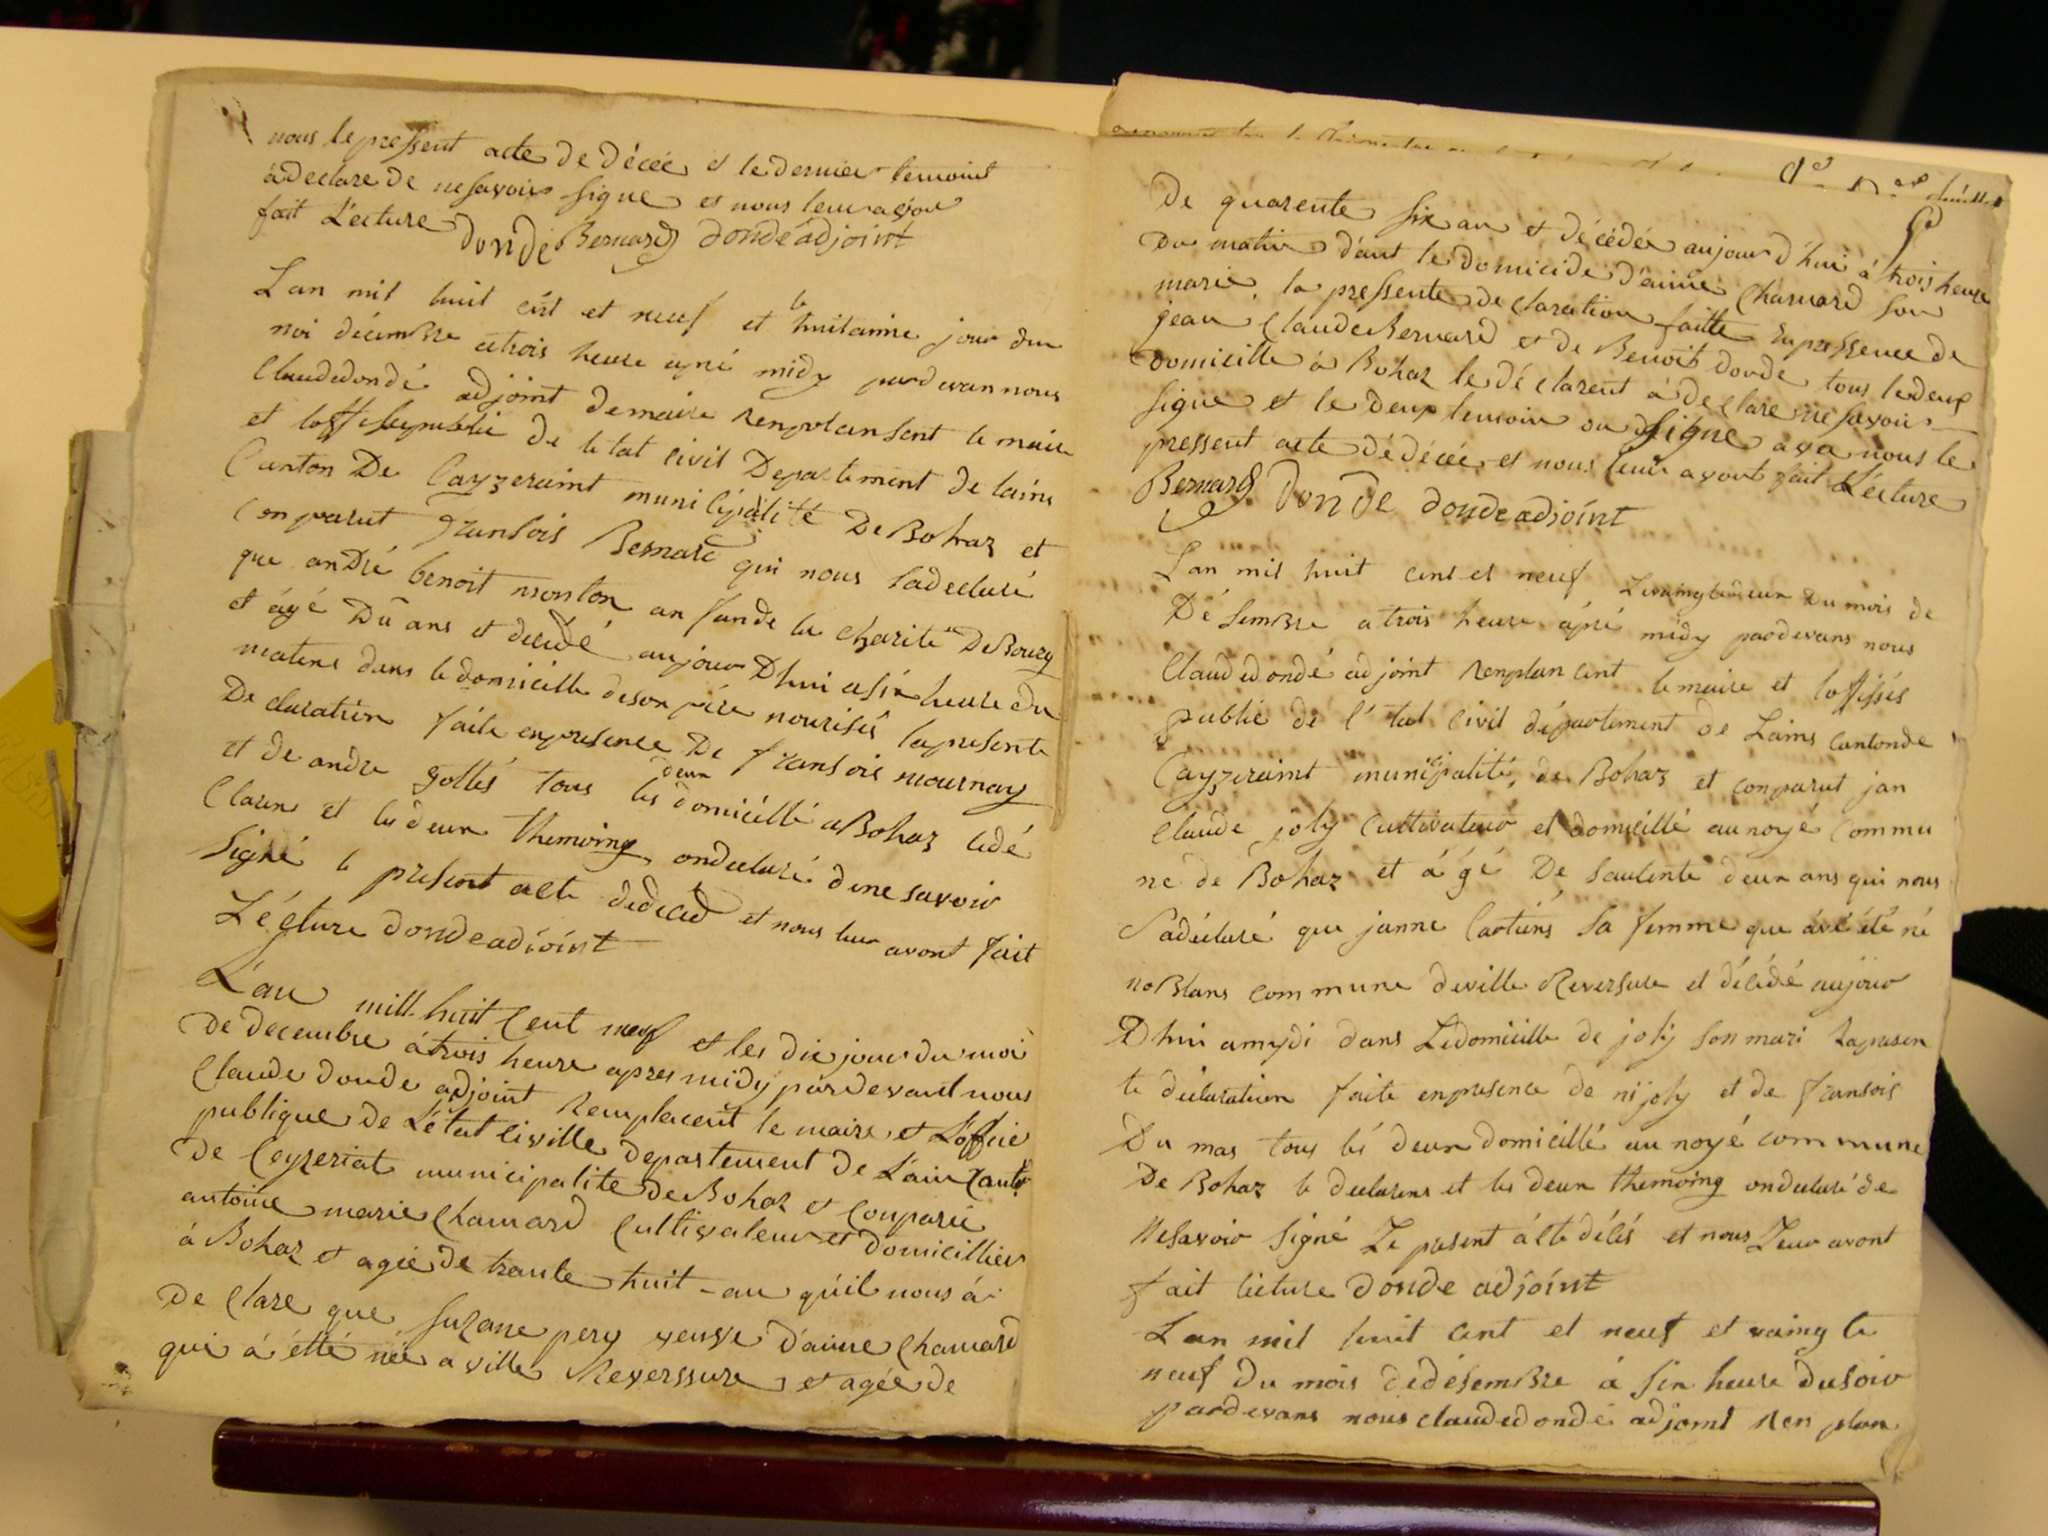 nous le pressent acte de décée et le dernier temoint
à declare de ne savoir signe et nous leur avon
fait Lecture dondé Bernard donde adjoint
Lan mil huit cent et neuf et le huitaime jour du
moi décembre a trois heure apré midy pardevan nous
Claude dondé adjoint de maire renplansent le maire
et de le tat civil Departement de lains
Canton De Cayzeraint municipalité De Bohaz et
Conparut fransois Bernard qui nous a declaré
que andré benoit monton anfande la charité De Bourg
et agé Du ans et decédé aujour Dhui a six heure du
matins dans le domicille de son père nourisié la presente
De claration faite en presence De fransois mournay
et de andre gollés tous les deux domicillé a Bohaz le dé
claren et les deux themoing on declaré de ne savoir
Signé le present acte de deced et nous leur avont fait
Lécture donde adjoint
L'an mill huit Cent neuf et les dix jour du moi
de decembre à trois heure apres midy pardevant nous
Claude donde adjoint remplacent le maire et L'offcié
publique de L'état civille departement de L'ain Canto
de Ceyzeriat municipalite de Bohaz et Conparu
antoine marie Chanard Cultivateur et domicillier
à Bohaz et agée de trante huit an qu'il nous à
de clare que Suzane pery d'aime Chanard
qui à étté née a ville Reverssure et agée de
de quarente six an et décédée aujour d'hui à trois heure
du matin dant le domicide d'aime Charnard son
marie la pressente declaration faitte en pressence de
jean Claude Bernard et de Benoit donde tous le deux
domicille à Bohaz le dé clarent à declare ne savoir
signe et le deux temoin on signe ave nous le
pressent acte dé décée et nous leur avont fait Lécture
Bernard donde donde adjoint
Lan mil huit cent et neuf Le vaingtuneume Du mois de
Désembre a trois heure apré midy pardevans nous
Claude dondé adjoint renplancent le maire et loffisiés
publié de l'état civil département de Lains Canton de
Cayzeraint municipalité de Bohaz et conparut jan
Claude joly Cultivateur et domicillé au noyé commu
ne de Bohaz et á gé De Sautente deux ans qui nous
a déclaré que janne Cartiéns Sa femme que avé été né
no Blans commune de ville Reversure et décédé aujour
Dhui a mydi dans Le domicille de joly son mari La presen
te déclaration faite en presence de ni joly et de fransois
Du mas tous lés deux domicillé au noyé commune
De Bohaz le declarens et les deux themoing on declaré de
Ne savoir Signé Le present ácte délés et nous Leur avont
fait lécture donde adjoint
Lan mil huit cent et neuf et vaing te
neuf Du mois de désembre á six heure du soir
pardevans nous claude dondé adjoint ren plan